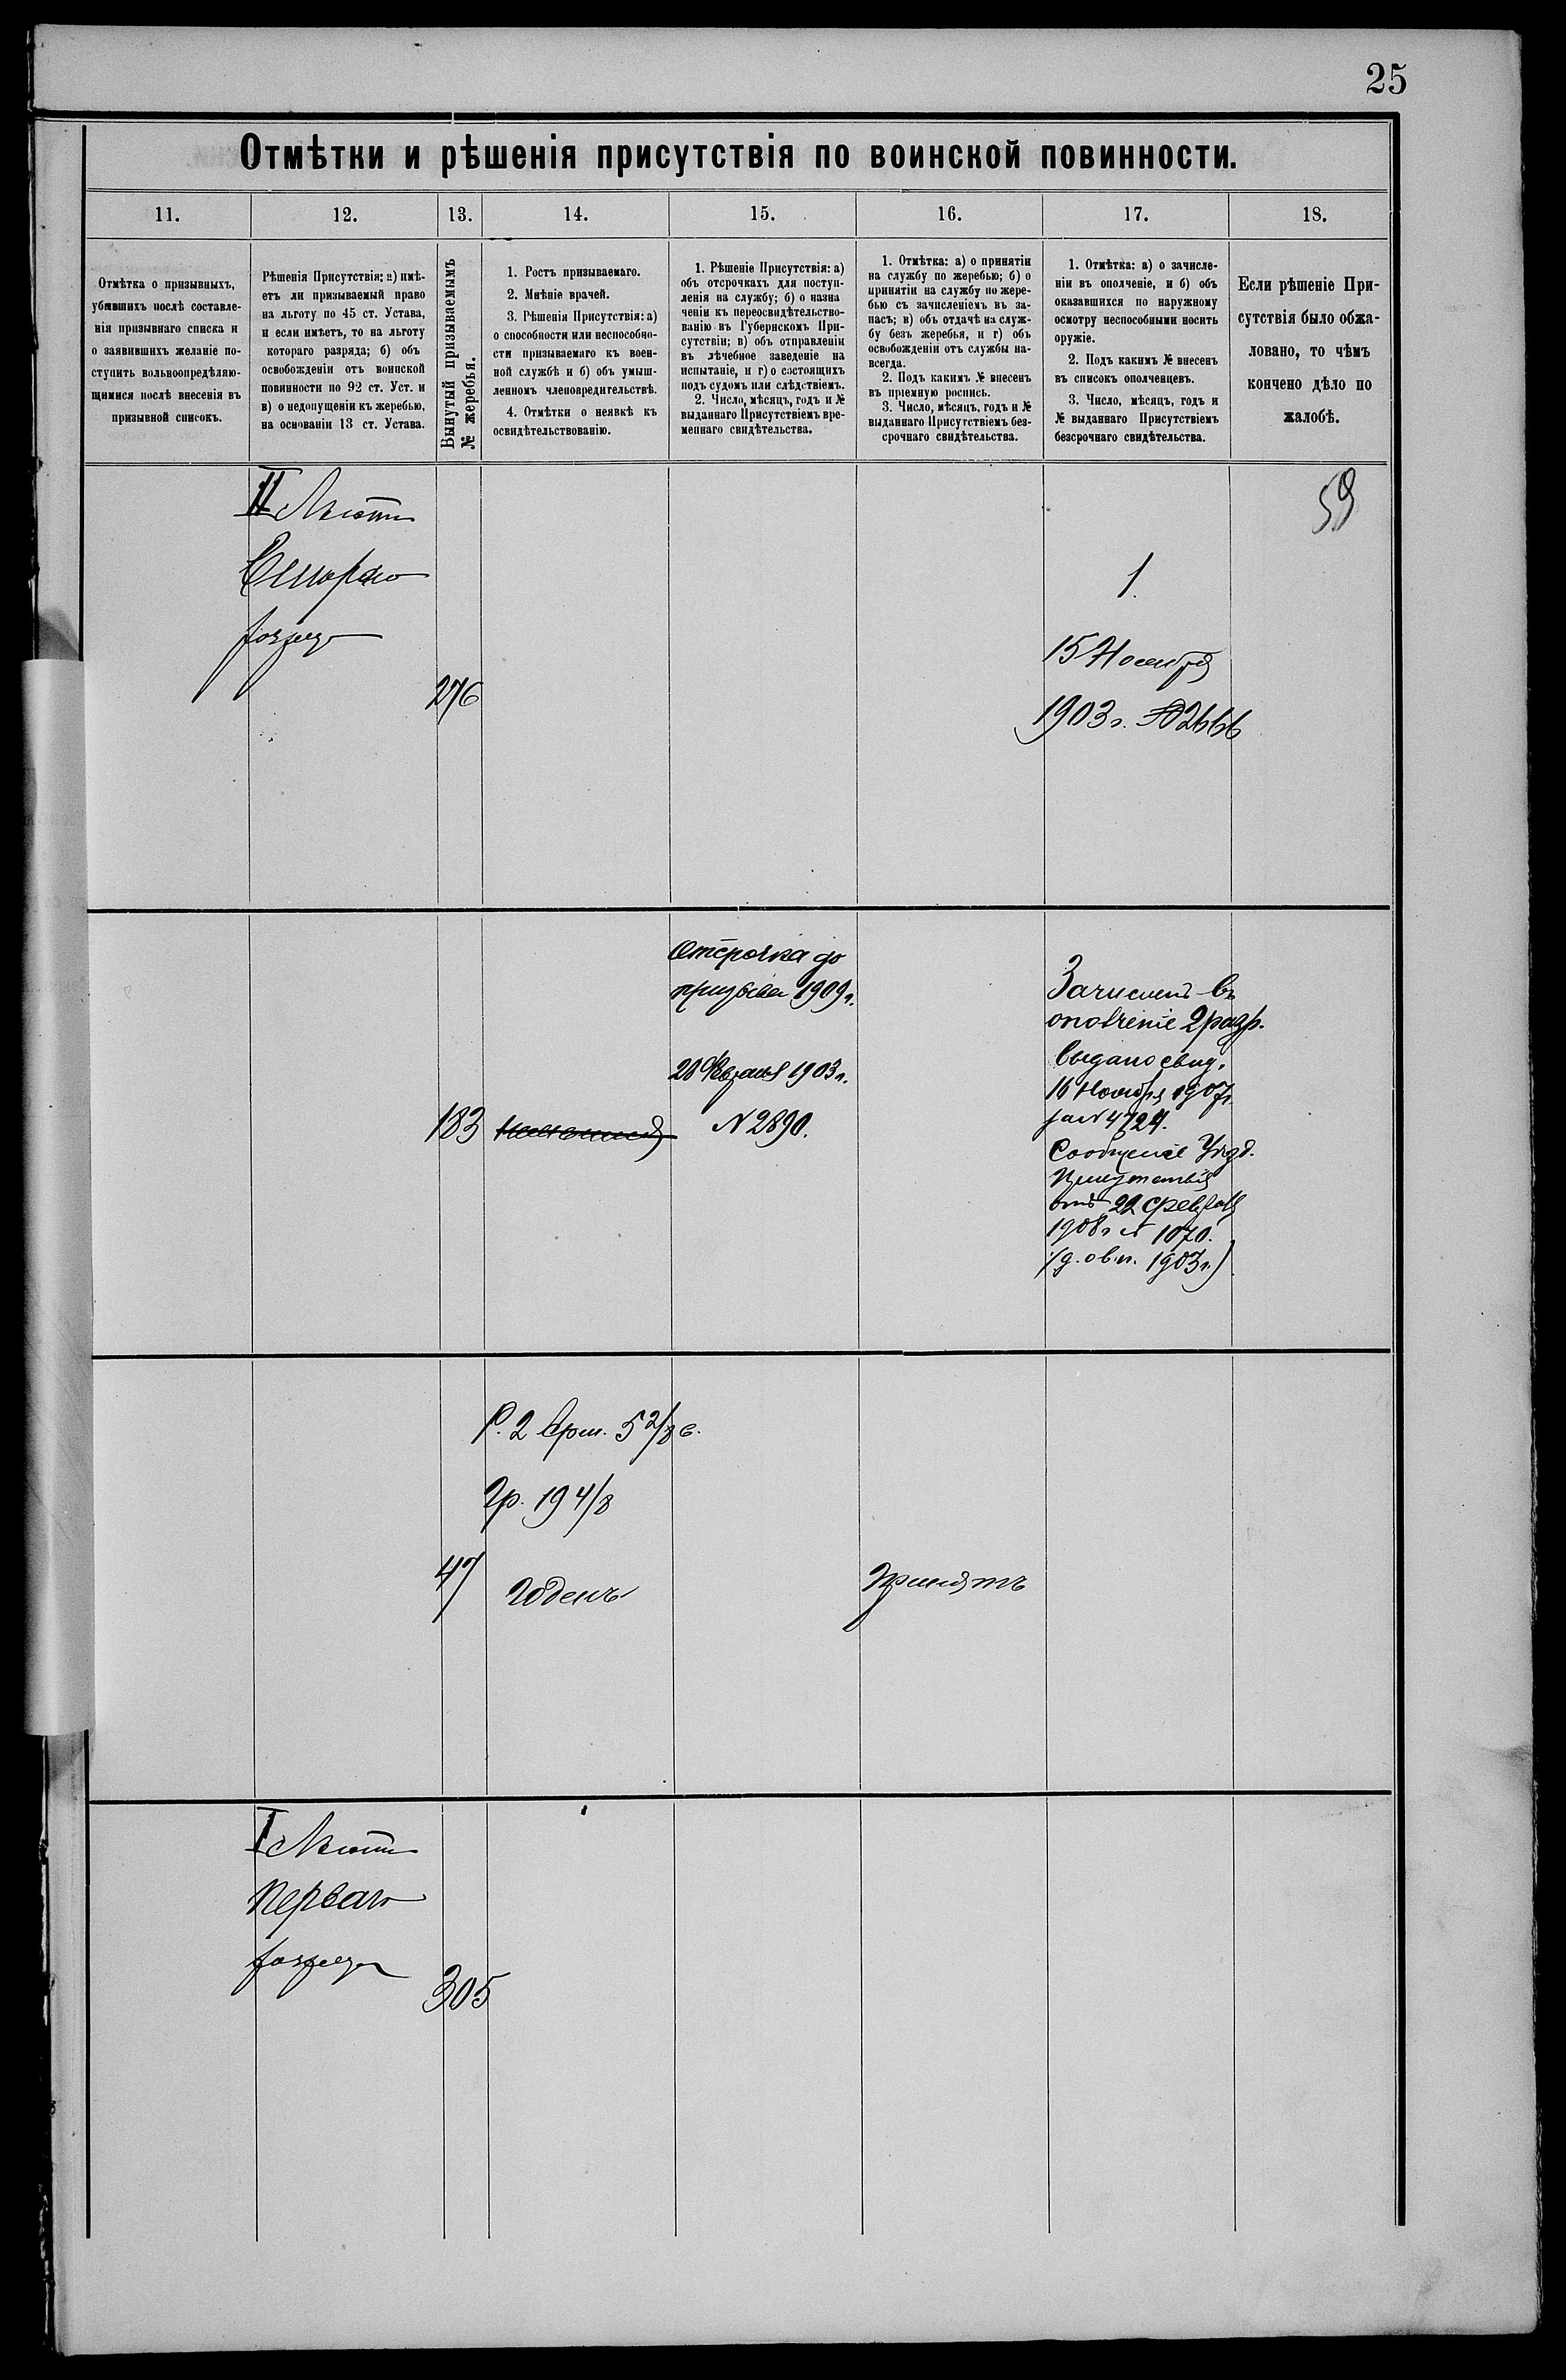 25
Отмѣтки и рѣшенія присутствія по воинской повинности.
11. 12. 13. 14. 15. 16. 17. 18.
Отмѣтка о призывныхъ,
убывшихъ послѣ составле-
нія призывнаго списка и
о заявившихъ желаніе по-
ступить вольноопредѣляю-
щимися послѣ внесенія въ
призывной списокъ.
Рѣшенія Присутствія: а) имѣ-
етъ ли призываемый право
на льготу по 45 ст. Устава,
и если имѣетъ, то на льготу
котораго разряда; б) объ
освобожденіи отъ воинской
повинности по 92 ст. Уст. и
в) о недопущеніи къ жеребью,
на основаніи 13 ст. Устава.
Вынутый призываемымъ
№ жеребья.
1. Ростъ призываемаго.
2. Мнѣніе врачей.
3. Рѣшенія Присутствія: а)
о способности или неспособно-
сти призываемаго къ воен-
ной службѣ и б) объ умыш-
ленномъ членовредительствѣ.
4. Отмѣтки о неявкѣ къ
освидѣтельствованію.
1. Рѣшеніе Присутствія: а)
объ отсрочкахъ для поступ-
ленія на службу; б) о назна
ченіи къ переосвидѣтельство-
ванію въ Губернскомъ При-
сутствіи; в) объ отправленіи
въ лѣчебное заведеніе на
испытаніе, и г) о состоящихъ
подъ судомъ или слѣдствіемъ.
2. Число, мѣсяцъ, годъ и №
выданнаго Присутствіемъ вре-
меннаго свидѣтельства.
1. Отмѣтка: а) о принятіи
на службу по жеребью; б) о
принятіи на службу по жере-
бью съ зачисленіемъ въ за-
пасъ; в) объ отдачѣ на служ-
бу безъ жеребья, и г) объ
освобожденіи отъ службы на-
всегда.
2. Подъ какимъ № внесенъ
въ пріемную роспись.
3. Число, мѣсяцъ, годъ и №
выданнаго Присутствіемъ без-
срочнаго свидѣтельства.
1. Отмѣтка: а) о зачисле-
ніи въ ополченіе, и б) объ
оказавшихся по наружному
осмотру неспособными носить
оружіе.
2. Подъ какимъ № внесенъ
въ списокъ ополченцевъ.
3. Число, мѣсяцъ, годъ и
№ выданнаго Присутствіемъ
безсрочнаго свидѣтельства.
Если рѣшеніе При-
сутствія было обжа-
ловано, то чѣмъ
кончено дѣло по
жалобѣ.
II Льготы
Второго
разряда
276
1.
15 Ноября
1903 г. № 2666
59
183
Отсрочка до
призыва 1909 г.
28 Февраля 1903 г.
N 2890.
Зачисленъ въ
ополченіе 2 разр.
Выдано свид.
16 Ноября 1907 г.
за N 4724.
Сообщеніе Уѣзд.
Присутствія
отъ 22 февраля
1908 г N 1070.
(д. о в.п. 1903 г.)
Р. 2 Арш. 5 2/8 в.
Гр. 19 4/8
47
Годенъ
Принятъ
I Льготы
Перваго
разряда
305